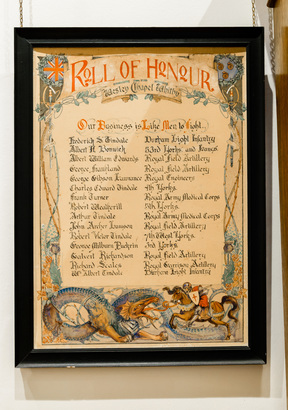 ROLL OF HONOUR
Wesley Chapel
Our Business is Like Men to Fight.
Frederick S. Tindale Durham Light Infantry
Albert H. 53rd Yorks and Francs
Albert William Edwards Royal Field Artillery
George Frankland Royal Field Artillery
George Gibson Laurance Royal Engineers
Charles Edward Tindale 4th Yorks.
Frank Turner Royal Army Medical Corps
Robert Weatherill 5th Yorks.
Arthur Tindale Royal Army Medical Corps
John Archer Royal Field Artillery
Robert Victor Tindale 7th West Yorks.
George William 3rd Yorks
Richardson Royal Field Artillery
Richard Scales Royal Garrison Artillery
Wm Albert Tindale Durham Light Infantry